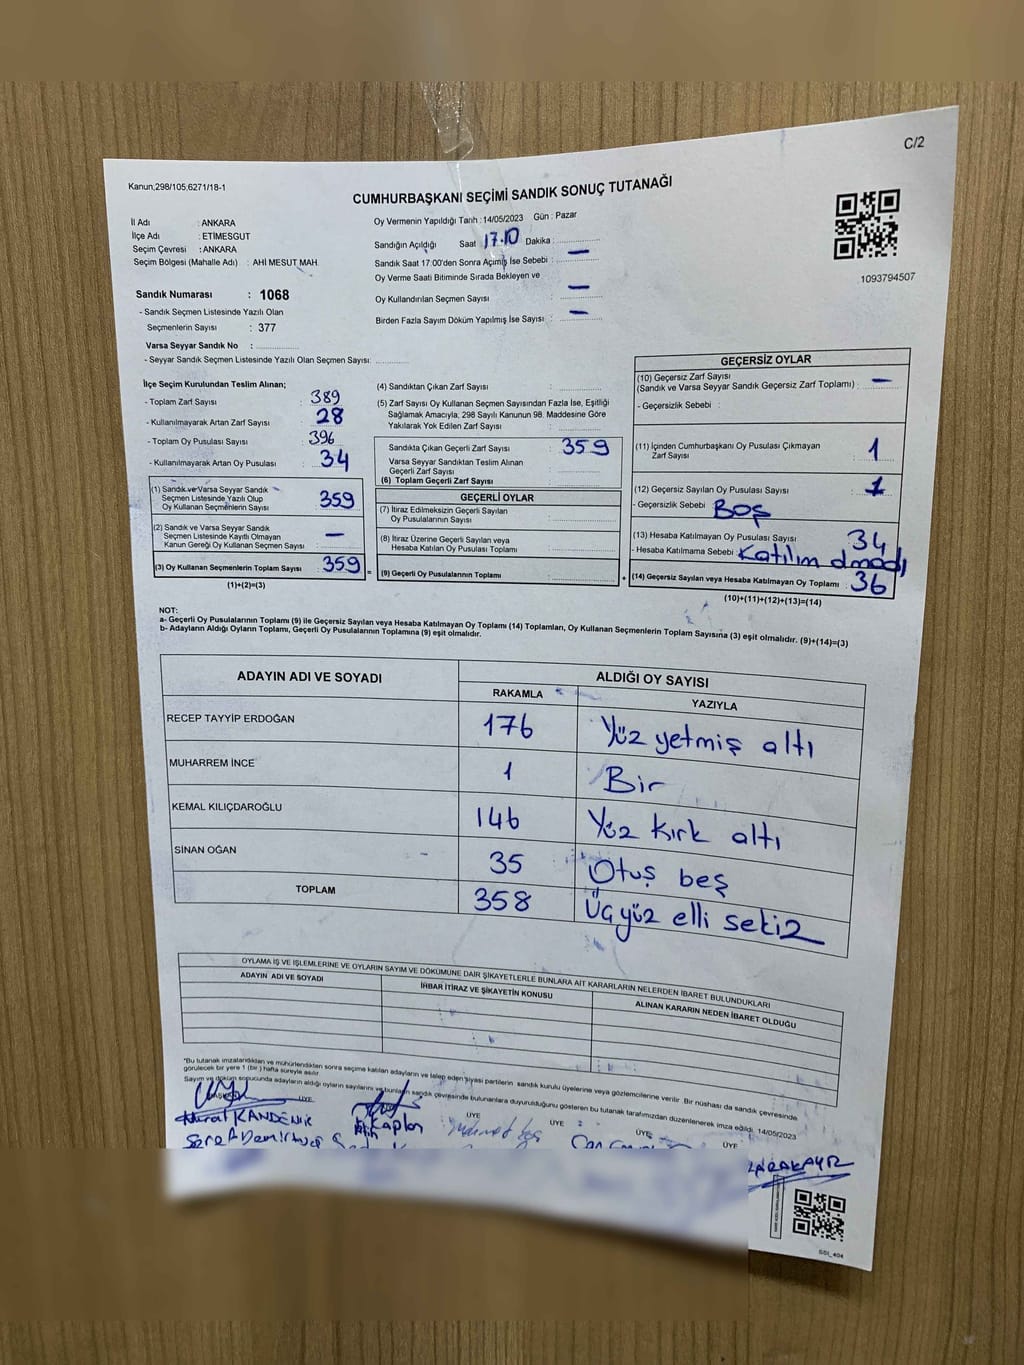 C/2
Kanun,298/105,6271/18-1
CUMHURBAŞKANI SEÇİMİ SANDIK SONUÇ TUTANAĞI
İl Adı : ANKARA
İlçe Adı : ETİMESGUT
Seçim Çevresi : ANKARA
Seçim Bölgesi (Mahalle Adı) : AHİ MESUT MAH.
Sandık Numarası : 1068
- Sandık Seçmen Listesinde Yazılı Olan
Seçmenlerin Sayısı : 377
Varsa Seyyar Sandık No :
- Seyyar Sandık Seçmen Listesinde Yazılı Olan Seçmen Sayısı:
Oy Vermenin Yapıldığı Tarih : 14/05/2023 Gün : Pazar
Sandığın Açıldığı Saat 17.10 Dakika :
Sandık Saat 17:00'den Sonra Açılmış İse Sebebi : —
Oy Verme Saati Bitiminde Sırada Bekleyen ve
Oy Kullandırılan Seçmen Sayısı : —
Birden Fazla Sayım Döküm Yapılmış İse Sayısı : —
1093794507
İlçe Seçim Kurulundan Teslim Alınan;
- Toplam Zarf Sayısı : 389
- Kullanılmayarak Artan Zarf Sayısı : 28
- Toplam Oy Pusulası Sayısı : 396
- Kullanılmayarak Artan Oy Pusulası : 34
(1) Sandık ve Varsa Seyyar Sandık
Seçmen Listesinde Yazılı Olup
Oy Kullanan Seçmenlerin Sayısı : 359
(2) Sandık ve Varsa Seyyar Sandık
Seçmen Listesinde Kayıtlı Olmayan
Kanun Gereği Oy Kullanan Seçmen Sayısı : —
(3) Oy Kullanan Seçmenlerin Toplam Sayısı : 359
(1)+(2)=(3)
(4) Sandıktan Çıkan Zarf Sayısı :
(5) Zarf Sayısı Oy Kullanan Seçmen Sayısından Fazla İse, Eşitliği
Sağlamak Amacıyla; 298 Sayılı Kanunun 98. Maddesine Göre
Yakılarak Yok Edilen Zarf Sayısı :
Sandıkta Çıkan Geçerli Zarf Sayısı : 359
Varsa Seyyar Sandıktan Teslim Alınan
Geçerli Zarf Sayısı :
(6) Toplam Geçerli Zarf Sayısı :
GEÇERLİ OYLAR
(7) İtiraz Edilmeksizin Geçerli Sayılan
Oy Pusulalarının Sayısı :
(8) İtiraz Üzerine Geçerli Sayılan veya
Hesaba Katılan Oy Pusulası Toplamı :
(9) Geçerli Oy Pusulalarının Toplamı :
GEÇERSİZ OYLAR
(10) Geçersiz Zarf Sayısı
(Sandık ve Varsa Seyyar Sandık Geçersiz Zarf Toplamı) : —
- Geçersizlik Sebebi :
(11) İçinden Cumhurbaşkanı Oy Pusulası Çıkmayan
Zarf Sayısı : 1
(12) Geçersiz Sayılan Oy Pusulası Sayısı : 1
- Geçersizlik Sebebi : Boş
(13) Hesaba Katılmayan Oy Pusulası Sayısı : 34
- Hesaba Katılmama Sebebi : Katılım olmadı
(14) Geçersiz Sayılan veya Hesaba Katılmayan Oy Toplamı : 36
(10)+(11)+(12)+(13)=(14)
NOT:
a- Geçerli Oy Pusulalarının Toplamı (9) ile Geçersiz Sayılan veya Hesaba Katılmayan Oy Toplamı (14) Toplamları, Oy Kullanan Seçmenlerin Toplam Sayısına (3) eşit olmalıdır. (9)+(14)=(3)
b- Adayların Aldığı Oyların Toplamı, Geçerli Oy Pusulalarının Toplamına (9) eşit olmalıdır.
ADAYIN ADI VE SOYADI ALDIĞI OY SAYISI
RAKAMLA YAZIYLA
RECEP TAYYİP ERDOĞAN 176 Yüz yetmiş altı
MUHARREM İNCE 1 Bir
KEMAL KILIÇDAROĞLU 146 Yüz kırk altı
SİNAN OĞAN 35 Otuş beş
TOPLAM 358 Üçyüz elli sekiz
OYLAMA İŞ VE İŞLEMLERİNE VE OYLARIN SAYIM VE DÖKÜMÜNE DAİR ŞİKAYETLERLE BUNLARA AİT KARARLARIN NELERDEN İBARET BULUNDUKLARI
ADAYIN ADI VE SOYADI İHBAR İTİRAZ VE ŞİKAYETİN KONUSU ALINAN KARARIN NEDEN İBARET OLDUĞU
*Bu tutanak imzalandıktan ve mühürlendikten sonra seçime katılan adayların ve talep eden siyasi partilerin sandık kurulu üyelerine veya gözlemcilerine verilir. Bir nüshası da sandık çevresinde
görülecek bir yere 1 (bir) hafta süreyle asılır.
Sayım ve döküm sonucunda adayların aldığı oyların sayılarını ve bunların sandık çevresinde bulunanlara duyurulduğunu gösteren bu tutanak tarafımızdan düzenlenerek imza edildi. 14/05/2023
BAŞKAN ÜYE ÜYE ÜYE ÜYE ÜYE
Murat KANDEMİR Kaplan
KARAKAYIZ